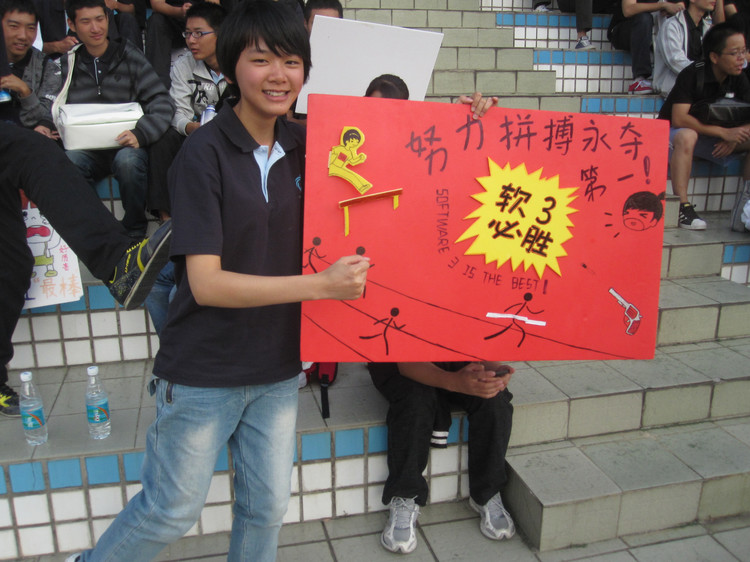 努力拼搏永夺
第一!
软3
必胜
SOFTWARE 3 IS THE BEST!
最棒